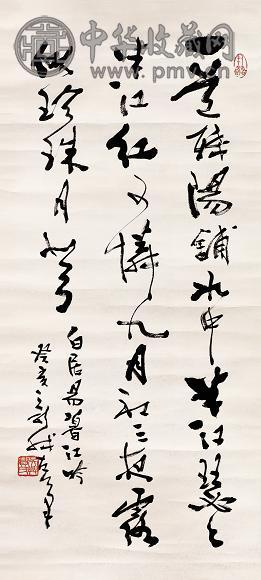 中华收藏网
www.pmv.cn
一道残陽舖水中半江瑟々
半江红可憐九月初三夜露
似珍珠月似弓
白居易暮江吟
癸亥